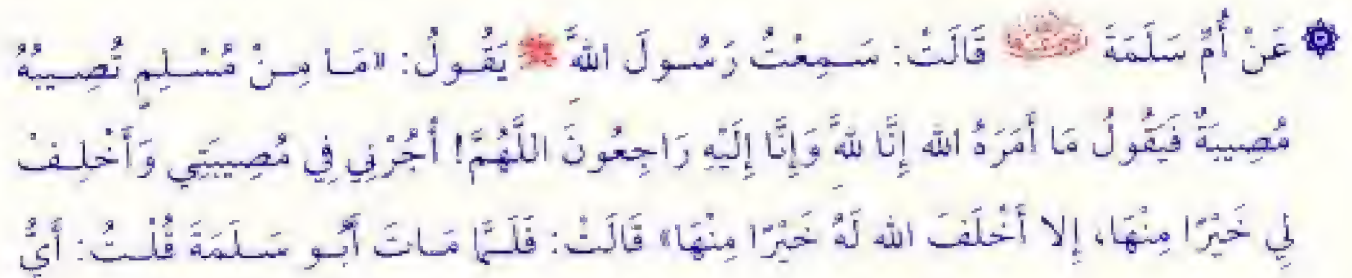 عَنْ أُمِّ سَلَمَةَ رضي الله عنها قَالَتْ: سَمِعْتُ رَسُولَ اللهِ ﷺ يَقُولُ: «مَا مِنْ مُسْلِمٍ تُصِيبُهُ
مُصِيبَةٌ فَيَقُولُ مَا أَمَرَهُ الله إِنَّا للهِ وَإِنَّا إِلَيْهِ رَاجِعُونَ اللَّهُمَّ! أْجُرْنِي فِي مُصِيبَتِي وَأَخْلِفْ
لِي خَيْرًا مِنْهَا، إِلا أَخْلَفَ الله لَهُ خَيْرًا مِنْهَا» قَالَتْ: فَلَمَّا مَاتَ أَبُو سَلَمَةَ قُلْتُ: أَيُّ